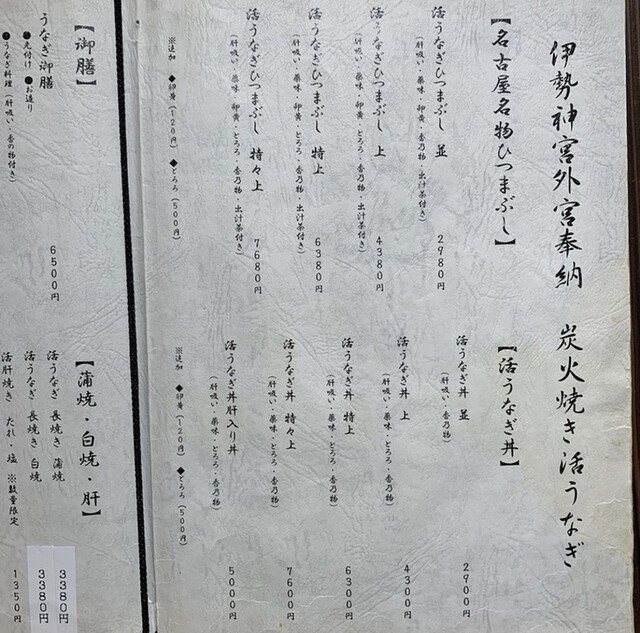 伊勢神宮外宮奉納　炭火焼き活うなぎ
【名古屋名物ひつまぶし】
活うなぎひつまぶし 並 2980円
(肝吸い・薬味・卵黄・とろろ・香乃物・出汁茶付き)
活うなぎひつまぶし 上 4380円
(肝吸い・薬味・卵黄・とろろ・香乃物・出汁茶付き)
活うなぎひつまぶし 特上 6380円
(肝吸い・薬味・卵黄・とろろ・香乃物・出汁茶付き)
活うなぎひつまぶし 特々上 7680円
(肝吸い・薬味・卵黄・とろろ・香乃物・出汁茶付き)
※追加 ◆卵黄(120円) ◆とろろ(500円)
【活うなぎ丼】
活うなぎ丼 並 2900円
(肝吸い・香乃物)
活うなぎ丼 上 4300円
(肝吸い・薬味・とろろ・香乃物)
活うなぎ丼 特上 6300円
(肝吸い・薬味・とろろ・香乃物)
活うなぎ丼 特々上 7600円
(肝吸い・薬味・とろろ・香乃物)
活うなぎ丼肝入り丼 5000円
(肝吸い・薬味・とろろ・香乃物)
※追加 ◆卵黄(120円) ◆とろろ(500円)
【御膳】
うなぎ御膳 6500円
●先付け ●お造り
●うなぎ料理(肝吸い・香の物付き)
【蒲焼・白焼・肝】
活うなぎ 長焼き 蒲焼 3380円
活うなぎ 長焼き 白焼 3380円
活肝焼き たれ・塩 ※数量限定 1350円